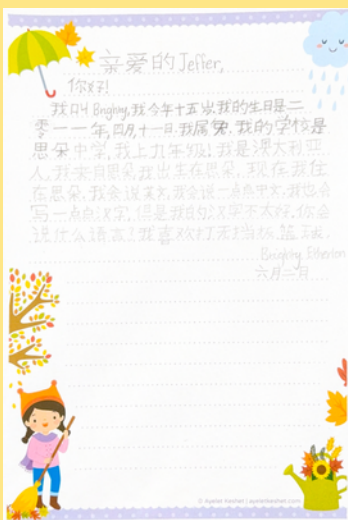 亲爱的Jeffer,
你好!
我叫Brighny,我今年十五岁.我的生日是二
零一一年,四月,十一日.我属兔.我的学校是
思朵中学,我上九年级!我是澳大利亚
人,我来自思朵我出生在思朵,现在我住
在思朵,我会说英文,我会说一点点中文,我也会
写一点点汉字,但是我的汉字不太好.你会
说什么语言?我喜欢打无挡板篮球.
Brighny Etherton
六月二日
© Ayelet Keshet | ayeletkeshet.com